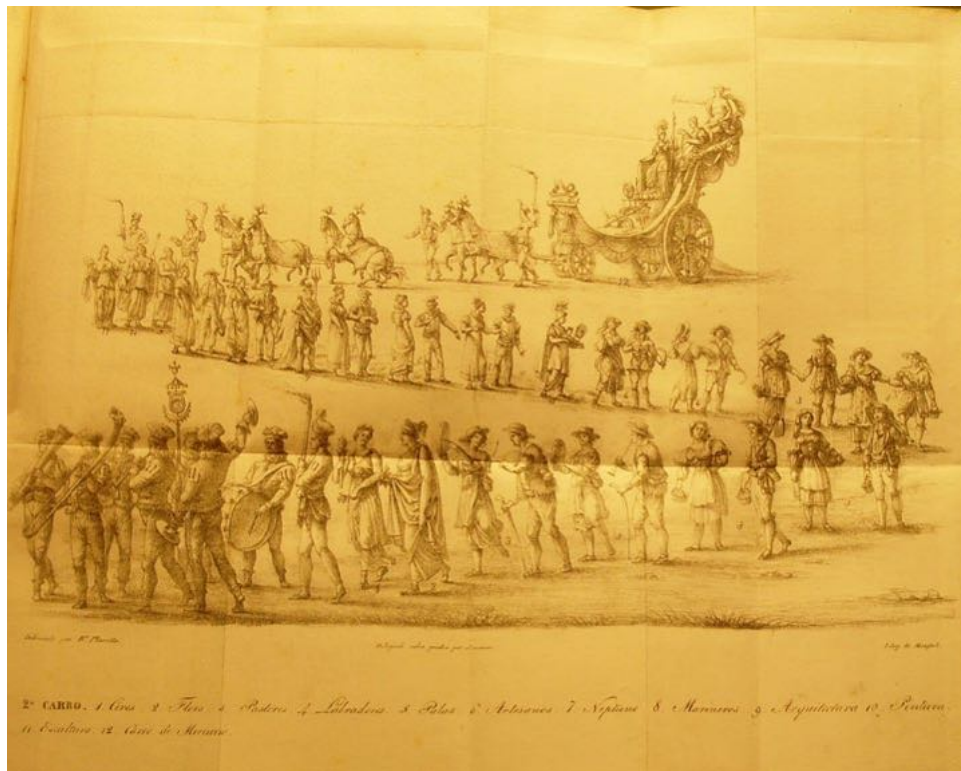 Dibuxado por Bto Planella
Lit. de Monfort
2º CARRO. 1 Ceres 2 Flora 3 Pastores 4 Labradores 5 Palas 6 Artesanos 7 Neptuno 8 Marineros 9 Arquitectura 10 Pintura
11 Escultura 12 Carro de Mercurio